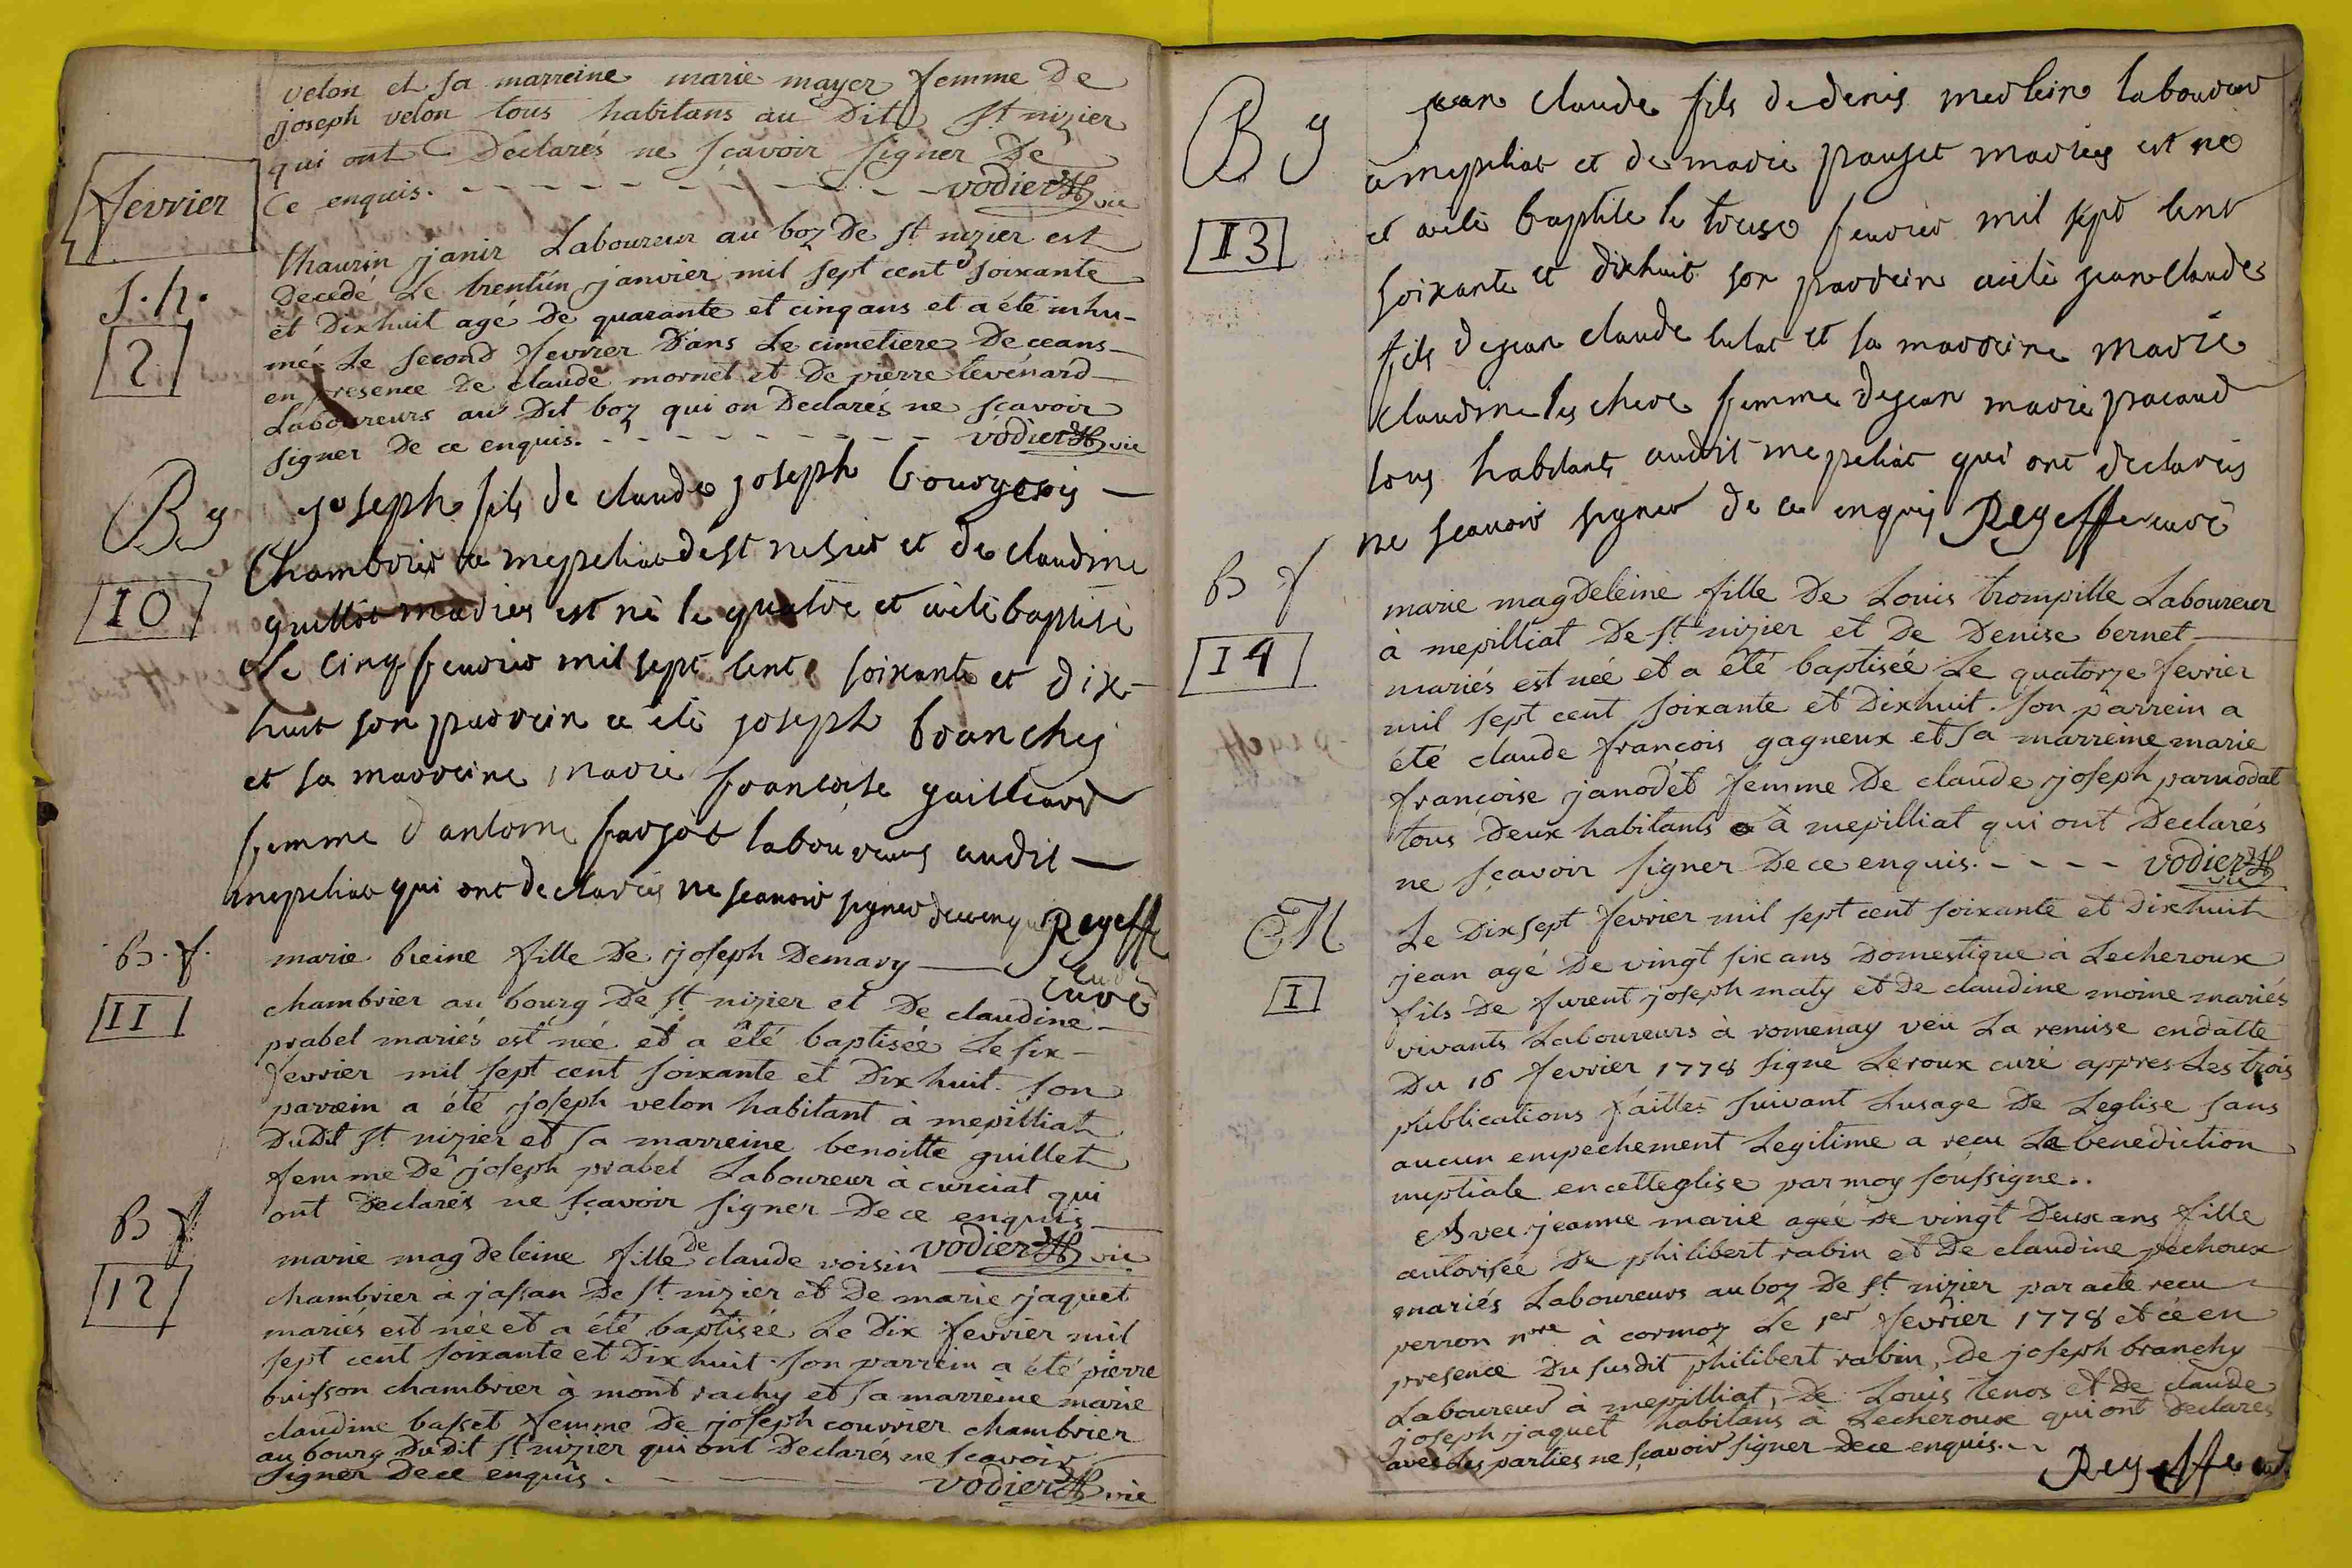 velon et sa marreine marie mayer femme De
joseph velon tous habitans au Dit St nizier
qui ont Déclarés ne sçavoir signer De
Ce enquis. vodier vic
fevrier
thaurin janir Laboureur au boz De St nizier est
S. h.
Decedé Le trentün janvier mil sept cent soixante
et Dixhuit agé De quarante et cinq ans et a été inhu-
2
mé Le second fevrier Dans Le cimetiere De ceans
en presence De claude mornet et De pierre levénard
Laboureurs au Dit boz qui on Declarés ne sçavoir
signer De ce enquis. vodier vic
B g
joseph fils de claude joseph bourgeois
Chambrier a mepeliat de st nesier et de claudine
10
guillot mariés est né le quatre et a été baptisé
le cinq feuvrier mil sept cent soixante et dix
huit son parrein a été joseph branchy
et sa marreine marie francoise gailliard
femme d antoine farjot laboureurs audit
mepeliat qui ont declarés ne scauoir signer de ce enquis Regeffe
curé
B. f.
marie Reine fille De joseph Demary
11
chambrier au bourg De St nizier et De claudine
prabel mariés est née et a été baptisée Le six
fevrier mil sept cent soixante et Dix huit. son
parrein a été joseph velon habitant à mepilliat
DuDit St nizier et sa marreine benoitte guillet
femme De joseph prabel Laboureur à curciat qui
ont Declarés ne sçavoir signer De ce enquis
vodier vic
B f
marie magdeleine fille de claude voisin
12
chambrier à jassan De St nizier et De marie jaquet
mariés est née et a été baptisée Le Dix fevrier mil
sept cent soixante et Dix huit. son parrein a été pierre
buisson chambrier à mont rachy et sa marreine marie
claudine basset femme De joseph couvrier chambrier
au bourg DuDit St nizier qui ont Declarés ne scavoir
signer De ce enquis. vodier vic
B g
jean claude fils de denis merlein laboureur
a mepeliat et de marie pauget mariés est né
13
et a été baptisé le treise feuvrier mil sept cent
soixante et dixhuit son parrein a été jean claude
fils de jean claude culat et sa marreine marie
claudine les chere femme de jean marie pacaud
tous habitants audit mepeliat qui ont declarés
ne scauoir signer de ce enquis Regeffe curé
B f
marie magdeleine fille De Louis trompille Laboureur
14
à mepilliat De St nizier et De Denise bernet
mariés est née et a été baptisée Le quatorze fevrier
mil sept cent soixante et Dixhuit. son parrein a
été claude françois gagneux et sa marreine marie
françoise janodet femme De claude joseph parnodat
tous Deux habitants à mepilliat qui ont Declarés
ne sçavoir signer De ce enquis. vodier
vic
M
Le Dixsept fevrier mil sept cent soixante et Dixhuit
1
jean agé De vingt six ans Domestique à Lecheroux
fils De furent joseph maty et De claudine moine mariés
vivants Laboureurs à romenay veü La remise en datte
Du 16 fevrier 1778 signé Leroux curé appres Les trois
publications faittes suivant Lusage De Leglise sans
aucun empechement Legitime a recu La benediction
nuptiale en cette glise par moy soussigné..
Avec jeanne marie agée De vingt Deux ans fille
autorisée De philibert rabin et De claudine pechoux
mariés Laboureurs au boz De St nizier par acte recu
perron nre à cormoz Le 1er fevrier 1778 et ce en
presence Du susdit philibert rabin, De joseph branchy
Laboureur à mepilliat, De Louis tenos et De claude
joseph jaquet habitans à Lecheroux qui ont Declarés
avec Les parties ne sçavoir signer De ce enquis.
Regeffe curé